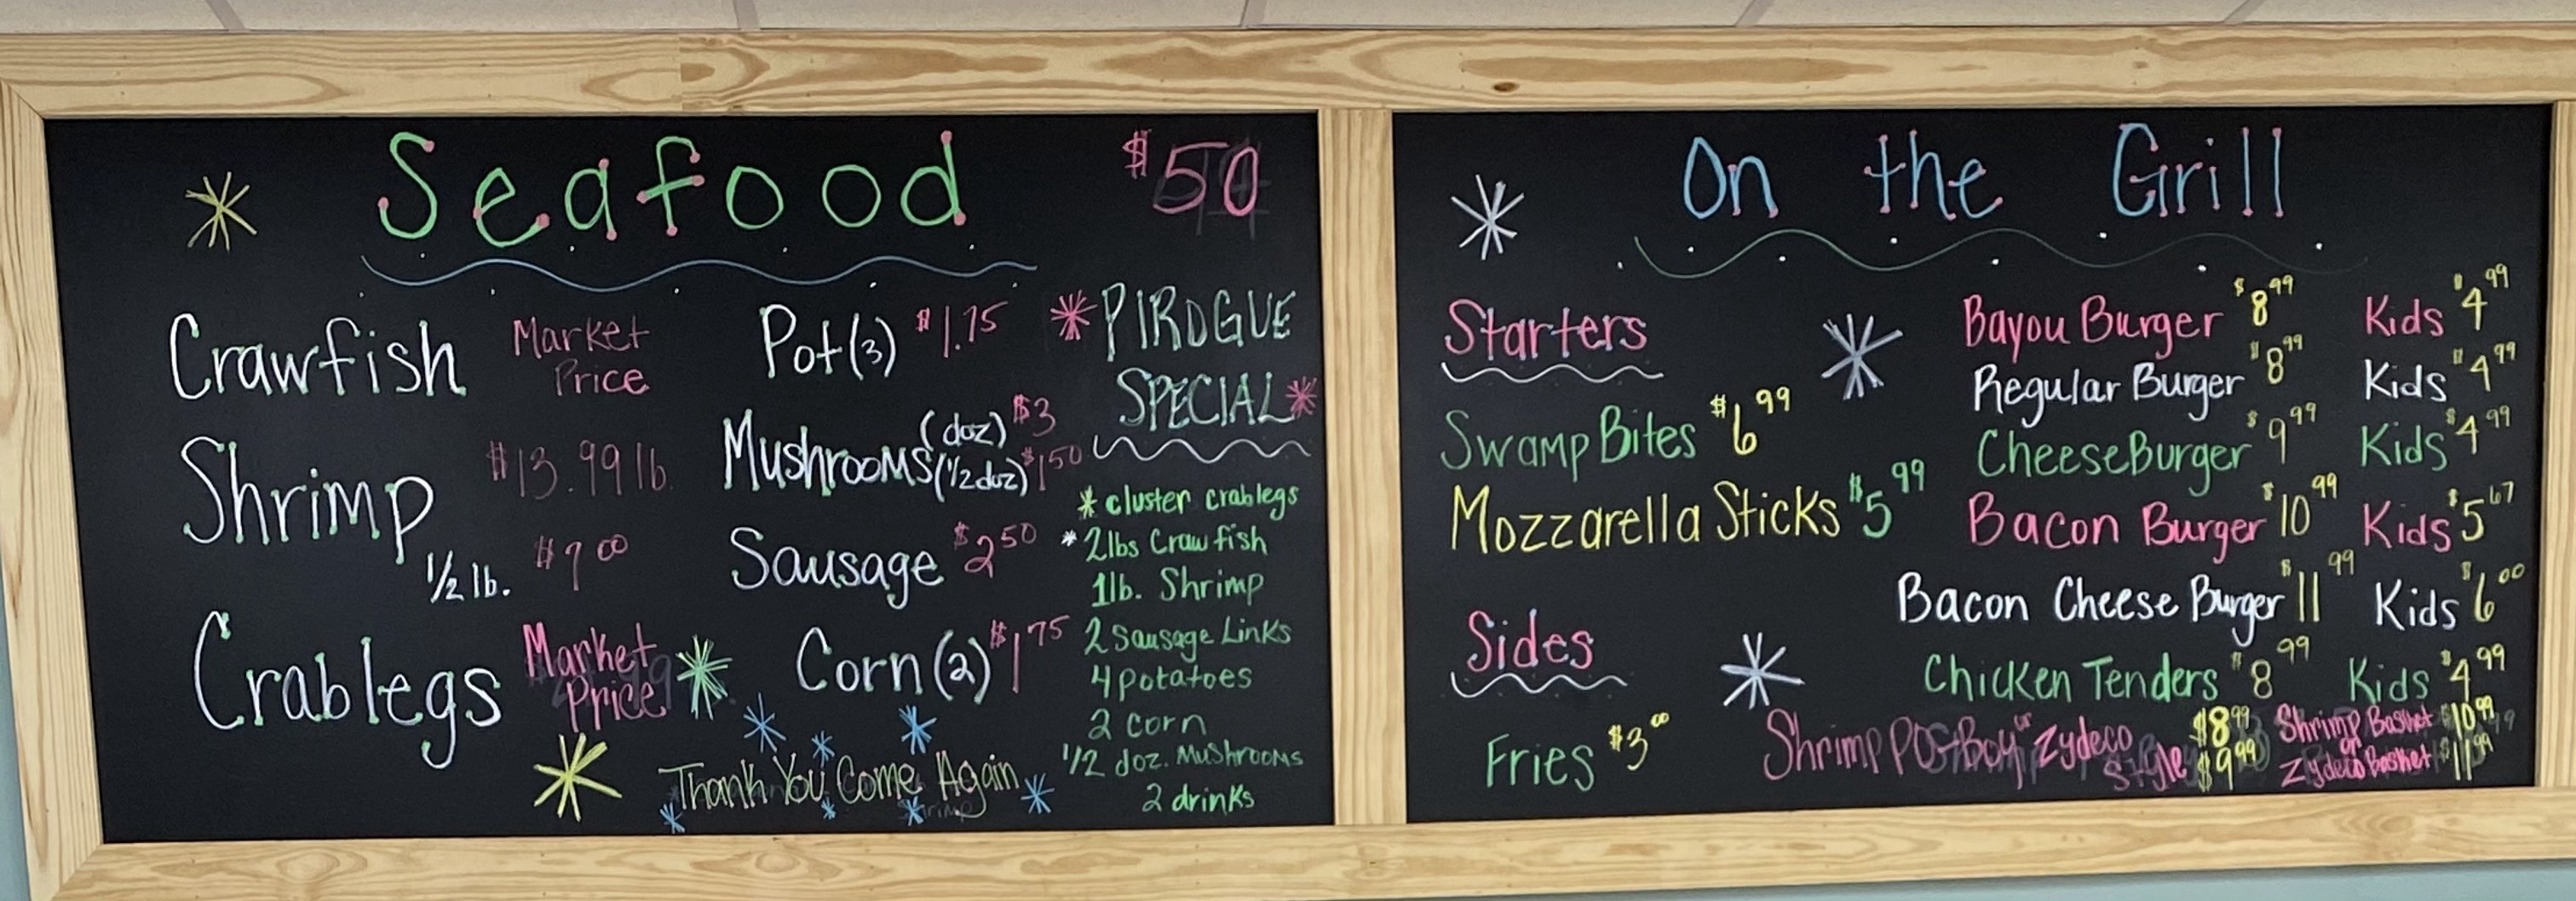 Seafood $50
Crawfish Market Price
Shrimp $13.99 lb.
1/2 lb. $7.00
Crablegs Market Price
Pot(3) $1.75
Mushrooms (doz) $3
(1/2 doz) $1.50
Sausage $2.50
Corn (2) $1.75
Thank You Come Again
*PIROGUE
SPECIAL*
* cluster crablegs
* 2lbs Crawfish
1lb. Shrimp
2 Sausage Links
4 potatoes
2 corn
1/2 doz. Mushrooms
2 drinks
On the Grill
Starters
Swamp Bites $6.99
Mozzarella Sticks $5.99
Sides
Fries $3.00
Bayou Burger $8.99 Kids $4.99
Regular Burger $8.99 Kids $4.99
CheeseBurger $9.99 Kids $4.99
Bacon Burger $10.99 Kids $5.67
Bacon Cheese Burger $11.99 Kids $6.00
Chicken Tenders $8.99 Kids $4.99
Shrimp PO-Boy $8.99 Shrimp Basket $10.99
or Zydeco Style $9.99 or Zydeco Basket $11.99